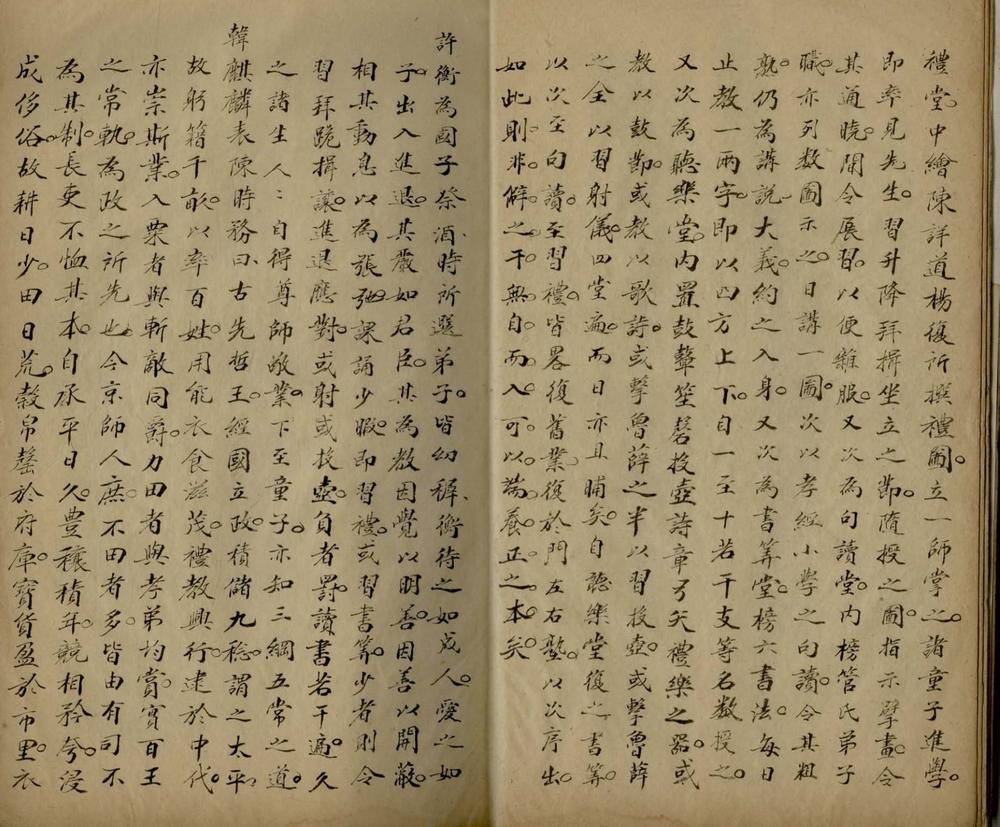 禮堂。中繪陳詳道楊復所撰禮圖。立一師掌之。諸童子進學。
即率見先生。習升降拜揖坐立之節。隨授之圖。指示擘畫。令
其通曉。閒令展習。以便雜服。又次為句讀堂。內榜管氏弟子
職。亦列數圖示之。日講一圖。次以孝經小學之句讀。令其粗
熟。仍為講說大義。約之入身。又次為書筭堂。榜六書法。每日
止教一兩字。即以四方上下。自一至十若干支等名數授之。
又次為聽樂堂。內置鼓鼙笙磬投壺詩章弓矢禮樂之器。或
教以鼓節。或教以歌詩。或擊魯薛之半以習投壺。或擊魯薛
之全以習射儀。四堂遍。而日亦且晡矣。自聽樂堂復之書筭。
以次至句讀。至習禮。皆畧復舊業。復於門左右塾。以次序出。
如此則非僻之干無自而入。可以端養正之本矣。
許衡為國子祭酒、時所選弟子。皆幼穉、衡待之如成人。愛之如
子。出入進退。其嚴如君臣。其為教因覺以明善。因善以開蔽。
相其動息以為張弛。課誦少暇。即習禮。或習書筭。少者則令
習拜跪揖讓。進退應對。或射或投壺。負者罰讀書若干遍。久
之諸生人〻自得尊師敬業。下至童子。亦知三綱五常之道。
韓麒麟表陳時務曰、古先哲王。經國立政。積儲九稔。謂之太平、
故躬籍千畝。以率百姓。用能衣食滋茂。禮教興行。逮於中代。
亦崇斯業。入粟者與斬敵同爵。力田者與孝弟均賞。實百王
之常軌。為政之所先也。今京師人庶。不田者多。皆由有司不
為其制。長吏不恤其本。自承平日久。豊穰積年。競相矜夸。浸
成侈俗。故耕日少。田日荒。穀帛罄於府庫。寶貨盈於市里。衣